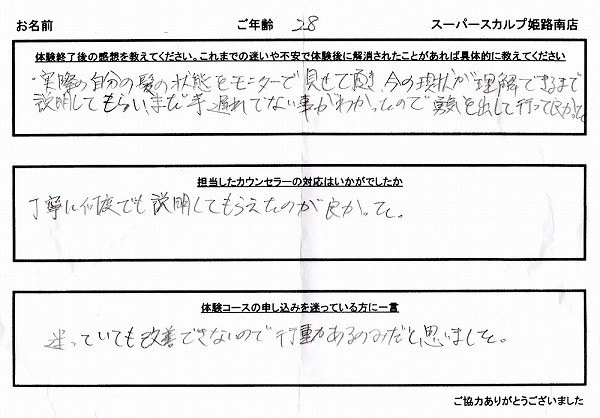 お名前 ご年齢 28 スーパースカルプ姫路南店
体験終了後の感想を教えてください。これまでの迷いや不安で体験後に解消されたことがあれば具体的に教えてください
実際の自分の髪の状態をモニターで見せて頂き、今の現状が理解できるまで
説明してもらいまだ手遅れでない事がわかったので勇気を出して行って良かった
担当したカウンセラーの対応はいかがでしたか
丁寧に何度でも説明してもらえたのが良かった。
体験コースの申し込みを迷っている方に一言
迷っていても改善できないので行動あるのみだと思いました。
ご協力ありがとうございました